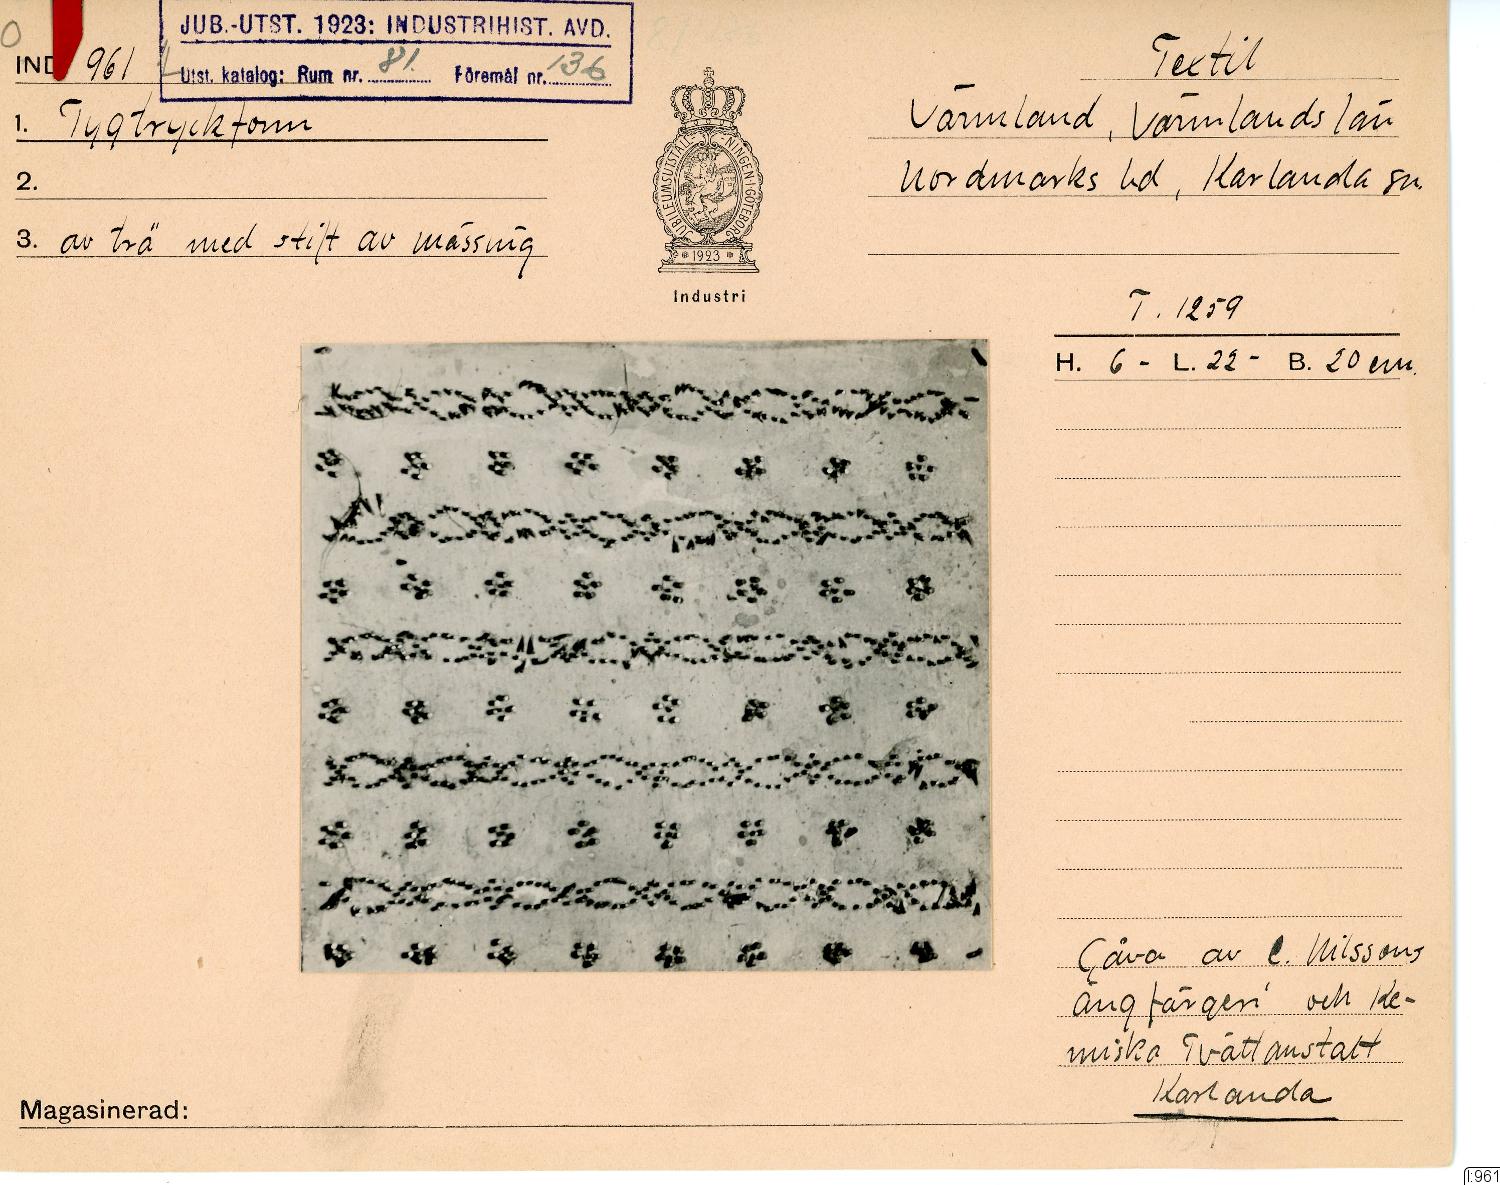 JUB.-UTST. 1923: INDUSTRIHIST. AVD.
Utst. katalog: Rum nr. 81. Föremål nr. 136
IND 961
1. Tygtryckform
2.
3. av trä med stift av mässing
JUBILEUMSUTSTÄLLNINGEN·I·GÖTEBORG
1923
Industri
Textil
Värmland, Värmlands län
Nordmarks hd, Karlanda sn.
T. 1259
H. 6 - L. 22 - B. 20 cm.
Gåva av C. Nilssons
Ångfärgeri och Ke-
miska Tvättanstalt
Karlanda
Magasinerad:
I:961